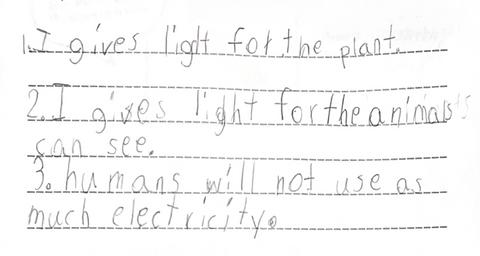 1. I gives light for the plant.
2. I gives light for the animals
can see.
3. humans will not use as
much electricity.